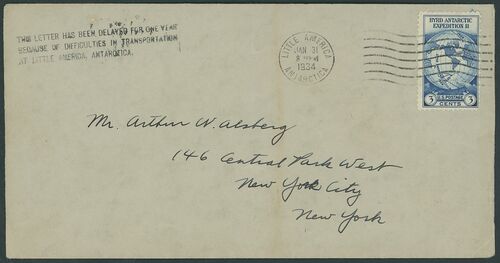 THIS LETTER HAS BEEN DELAYED FOR ONE YEAR
BECAUSE OF DIFFICULTIES IN TRANSPORTATION
AT LITTLE AMERICA, ANTARCTICA.
LITTLE AMERICA
JAN 31
1934
ANTARCTICA
BYRD ANTARCTIC
EXPEDITION II
U.S. POSTAGE
3 CENTS 3
Mr. Arthur W. Alsberg
146 Central Park West
New York City
New York